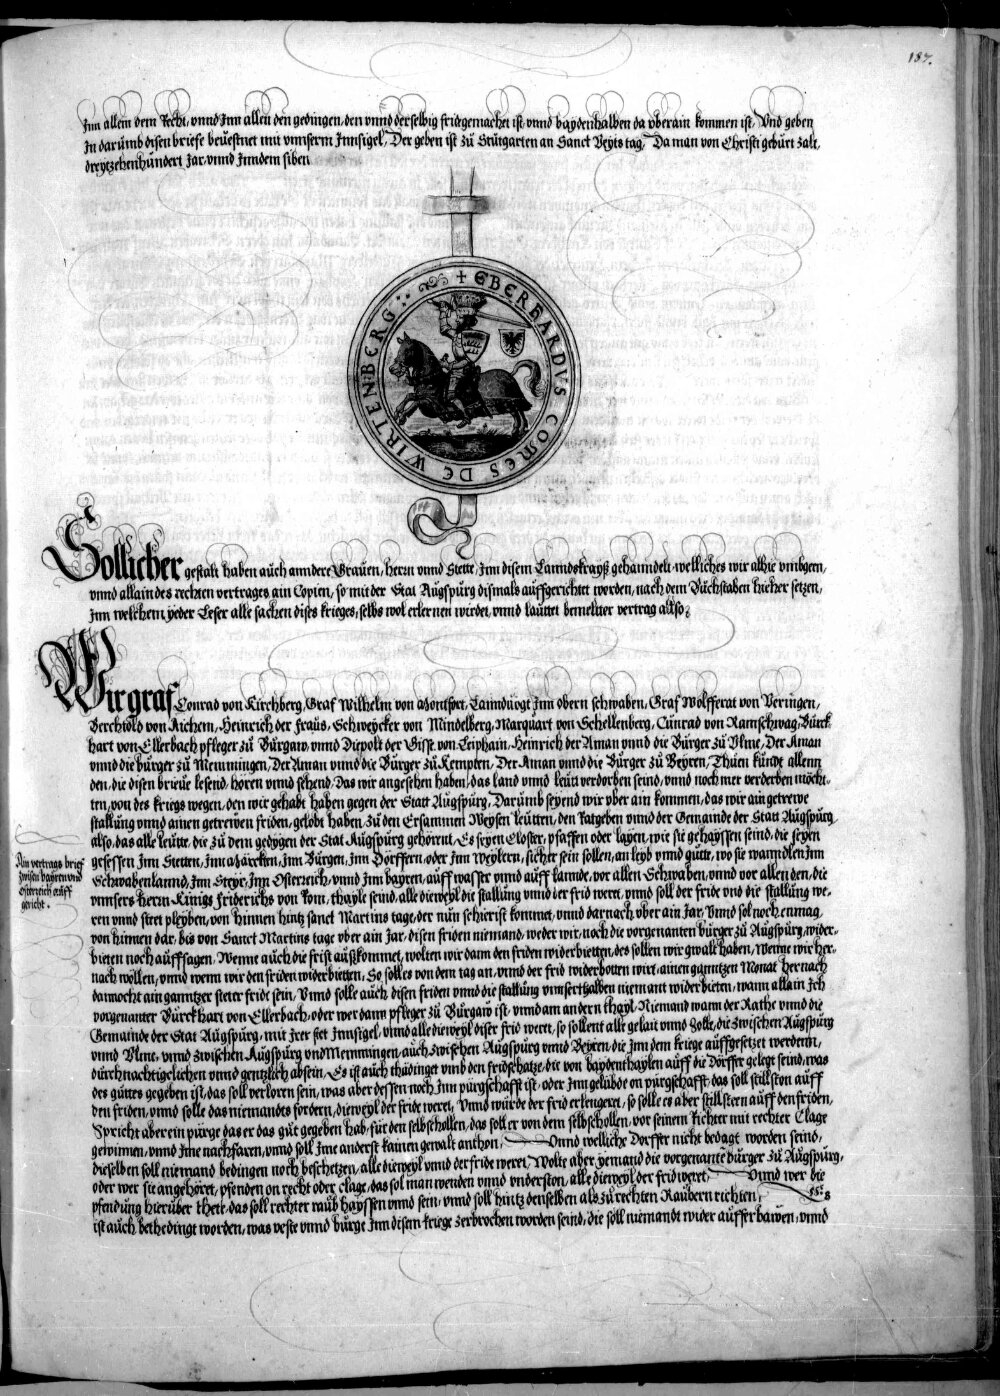 187.
Jnn allem dem Recht, vnnd Jnn allen den gedingen, den vnnd derselbig fridgemachet ist, vnnd baydenthalben da vberain kommen ist, Vnd geben
Jn darumb disen briefe beuestnet mit vnnserm Jnnsigel, Der geben ist zu Stutgarten an Sanct Veyts tag, Da man von Christi geburt zalt,
dreytzehenhundert Jar, vnnd Jnndem siben
+ EBERHARDVS COMES DE WIRTENBERG
Sollicher gestalt haben auch anndere Grauen, Herrn vnnd Stette, Jnn disem Lanndskrayß gehanndelt, welliches wir alhie vmbgeen,
vnnd allain des rechten vertrages ain Copien, so mit der Stat Augspurg dismals auffgerichtet worden, nach dem Buchstaben hieher setzen,
Jnn welchem yeder Leser alle sachen dises krieges, selbs wol erlernen wirdet, vnnd lauttet bemelter vertrag allso:
Wir graf Conrad von Kirchberg, Graf Wilhelm von Montfort, Lanndtuogt Jnn obern schwaben, Graf Wolfferat von Veringen,
Berchtold von Aichem, Heinrich der Fraus, Schweycker von Mindelberg, Marquart von Schellenberg, Cunrad von Ramschwag, Burck
hart von Ellerbach pfleger zu Burgaw, vnnd Diepolt der Gisse von Leiphain, Heinrich der Aman vnnd die Burger zu Vlme, Der Aman
vnnd die burger zu Memmingen, Der Aman vnnd die Burger zu Kempten, Der Aman vnnd die Burger zu Beyren, Thuen kundt allenn
den, die disen brieue lesend, hören vnnd sehend, Das wir angesehen haben, das land vnnd leut verdorben seind, vnnd noch mer verderben möcht-
ten, von des kriegs wegen, den wir gehabt haben gegen der Statt Augspurg, Darumb seyend wir vber ain kommen, das wir ain getrewe
stallung vnnd ainen getrewen friden, gelobt haben zu den Ersammen Weysen leutten, den Ratgeben vnnd der Gemainde der Statt Augspurg
also, das alle leutte, die zu dem gedygen der Stat Augspurg gehörnt, Es seyen Closter, pfaffen oder layen, wie sie gehayssen seind, die seyen
gesessen Jnn Stetten, Jnn Märckten, Jnn Burgen, Jnn Dörffern, oder Jnn Weylern, sicher sein sollen, an leyb vnnd gutte, wo sie wanndlen Jnn
Schwabenlannd, Jnn Steyr, Jnn Osterreich, vnnd Jnn bayren, auff wasser vnnd auff lannde, vor allen Schwaben, vnnd vor allen den, die
vnnsers herrn Kunigs Friderichs von Rom, thayle seind, alle dieweyl die stallung vnnd der frid weret, vnnd soll der fride vnd die stallung we-
ren vnnd steet pleyben, von hinnen hintz sanct Martins tage, der nun schierist kommet, vnnd darnach vber ain Jar, Vnnd sol noch enmag
von hinnen dar, bis von Sanct Martins tage vber ain Jar, disen friden niemand, weder wir, noch die vorgenanten burger zu Augspurg, wider-
bieten noch auffsagen, Wenne auch die frist außkommet, wolten wir dann den friden widerbietten, des sollen wir gwalt haben, Wenne wir her-
nach wöllen, vnnd wenn wir den friden widerbietten, So soll es von dem tag an, vnnd der frid widerbotten wirt, ainen ganntzen Monat hernach
dannocht ain ganntzer steter fride sein, Vnnd solle auch disen friden vnnd die stallung vnnserthalben niemant widerbieten, wann allain Jch
vorgenanter Burckhart von Ellerbach, oder wer dann pfleger zu Burgaw ist, vnnd am andern thayl, Niemand wann der Rathe vnnd die
Gemainde der Stat Augspurg, mit Jrer stet Jnnsigel, vnnd alle dieweyl diser frid weret, so sollent alle gelait vnnd Zolle, die zwischen Augspurg
vnnd Vlme, vnnd zwischen Augspurg vnd Memmingen, auch zwischen Augspurg vnnd Beyren, die Jnn dem kriege auffgesetzet werdenn,
durchnachtigelichen vnnd gentzlich absein, Es ist auch thädinget vmb den fridschatze, die von baydenthaylen auff die Dörffer gelegt seind, was
des guttes gegeben ist, das soll verloren sein, was aber dessen noch Jnn purgschafft ist, oder Jnn gelubde on purgschafft, das soll stillston auff
den friden, vnnd solle das niemandts fordern, dieweyl der fride weret, Vnnd wurde der frid erlengeret, so solle es aber stillsteen auff den friden,
Spricht aber ein purge das er das gut gegeben hab, fur den selbschollen, das soll er von dem selbschollen, vor seinem Richter mit rechter Clage
gewinnen, vnnd Jme nachfaren, vnnd soll Jme anderst kainen gewalt anthon, Vnnd welliche Dörffer nicht bedagt worden seind,
dieselben soll niemand bedingen noch beschetzen, alle dieweyl vnnd der fride weret, Wolte aber yemand die vorgenante burger zu Augspurg,
oder wer sie angehöret, pfenden on recht oder clage, das sol man wenden vnnd vnderston, alle dieweyl der frid weret, Vnnd wer die
pfendung hieruber thete, das soll rechter raub hayssen vnnd sein, vnnd soll hintz denselben als zu rechten Raubern richten,
ist auch bethedingt worden, was veste vnnd burge Jnn disem kriege zerbrochen worden seind, die soll niemandt wider aufferbawen, vnnd
Ain vertrags brief
zwisen bayren vnd
Osterreich auff
gericht.